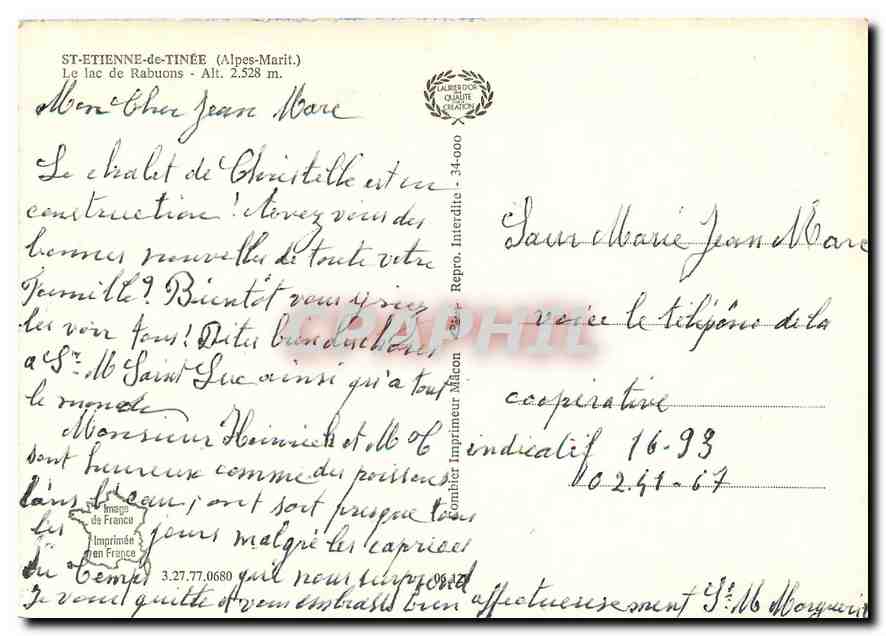 ST-ETIENNE-de-TINÉE (Alpes-Marit.)
Le lac de Rabuons - Alt. 2.528 m.
LAURIER D'OR
DE
QUALITE
CREATION
Mon Cher Jean Marc
Le chalet de Christelle est en
construction ! Avez vous des
bonnes nouvelles de toute votre
Famille ? Bientôt vous irez
les voir tous ! Dites bien des choses
a Sr M Saint Luc ainsi qu'a tout
le monde
Monsieur Heinrich et M C
sont heureux comme des poissons
dans l'eau, ont sort presque tous
les jours malgré les caprices
du temps qui nous surprend
Je vous quitte et vous embrasse bien affectueusement Sr M Marguerite
Combier Imprimeur Mâcon Repro. Interdite - 34-000
CPAPHIL
Sœur Marie Jean Marc
voici le téléphone de la
coopérative
indicatif 16-93
02.41-67
Image
de France
Imprimée
en France
3.27.77.0680